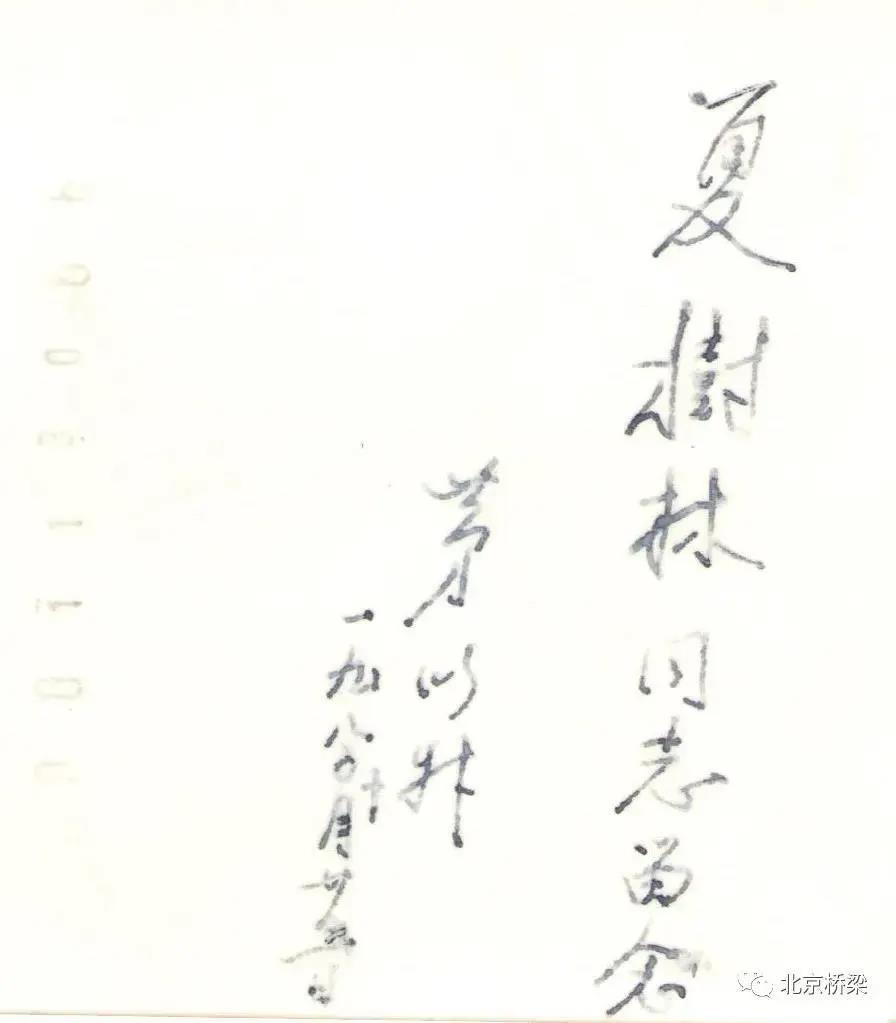 夏樹林同志留念
茅以升
一九八〇年十月廿
北京桥梁